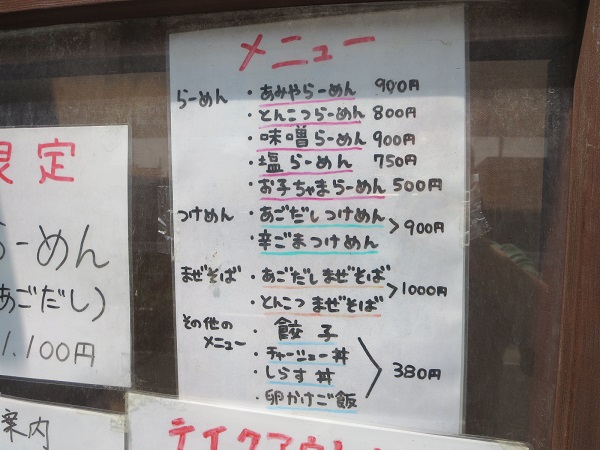 メニュー
らーめん ・あみやらーめん 900円
・とんこつらーめん 800円
・味噌らーめん 900円
・塩らーめん 750円
・お子ちゃまらーめん 500円
つけめん ・あごだしつけめん
・辛ごまつけめん
>900円
まぜそば ・あごだしまぜそば
・とんこつまぜそば
>1000円
その他のメニュー
・餃子
・チャーシュー丼
・しらす丼
・卵かけご飯
>380円
限定
らーめん
あごだし)
1.100円
案内
テイクアウト